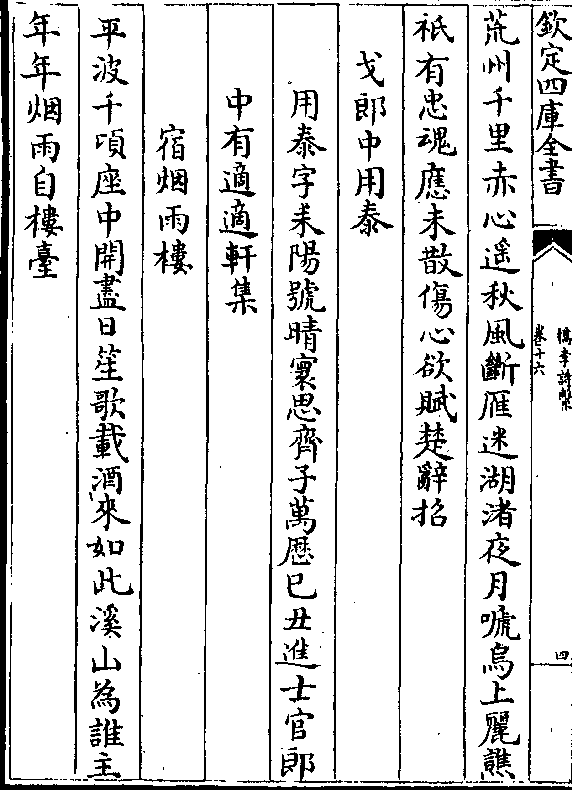 欽定四庫全書
檇李詩繫
卷十六
四
荒州千里赤心遥秋風斷雁迷湖渚夜月嗁烏上麗譙
祇有忠魂應未散傷心欲賦楚辭招
戈郎中用泰
用泰字耒陽號晴寰思齊子萬歷己丑進士官郎
中有適適軒集
宿烟雨樓
平波千頃座中開盡日笙歌載酒來如此溪山為誰主
年年烟雨自樓臺